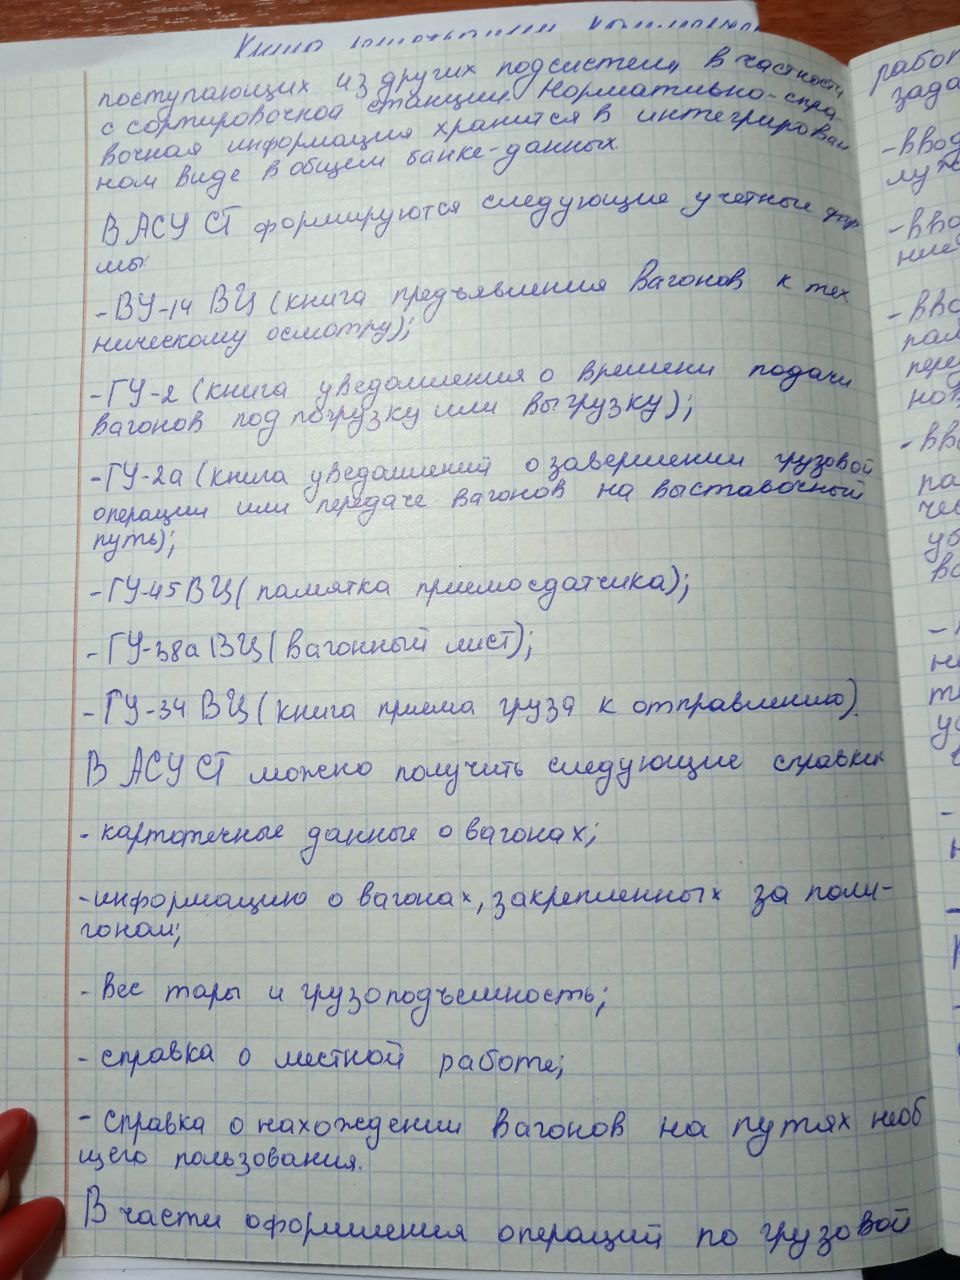 поступающих из других подсистем, в частности
с сортировочной станции. Нормативно-спра-
вочная информация хранится в интегрирован
ном виде в общем банке-данных.
В АСУ СТ формируются следующие учетные фор
мы:
-ВУ-14 ВЦ (книга предъявления вагонов к тех
ническому осмотру);
-ГУ-2 (книга уведомления о времени подачи
вагонов под погрузку или выгрузку);
-ГУ-2а (книга уведомлений о завершении грузовой
операции или передаче вагонов на выставочный
путь);
-ГУ-45ВЦ (памятка приемосдатчика);
-ГУ-38а ВЦ (вагонный лист);
-ГУ-34 ВЦ (книга приема груза к отправлению).
В АСУ СТ можно получить следующие справки
- картотечные данные о вагонах;
-информацию о вагонах, закрепленных за поли-
гоном;
- вес тары и грузоподъемность;
- справка о местной работе;
- справка о нахождении вагонов на путях необ
щего пользования.
В части оформления операций по грузовой
работ
зада
-ввод
-
-
-